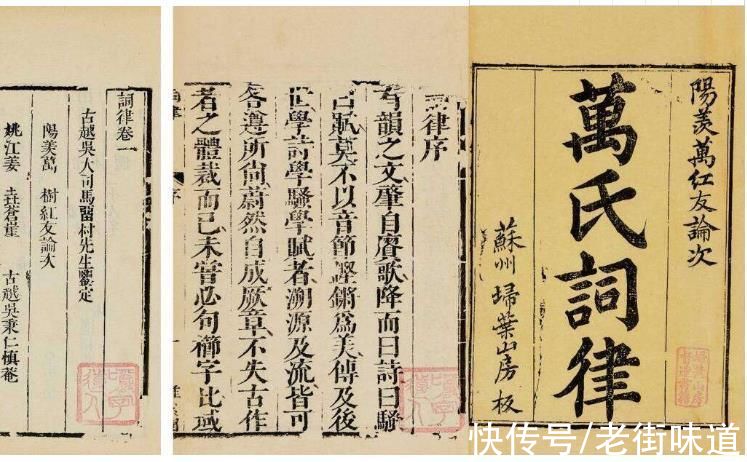 陽羨萬紅友論次
萬氏詞律
蘇州 掃葉山房板
律序
有韻之文肇自賡歌降而曰詩曰騷
曰賦莫不以音節鏗鏘爲美傳及後
世學詩學騷學賦者溯源及流皆可
各遵所尚蔚然自成厥章不失古作
者之體裁而已未嘗必句櫛字比域
詞律卷一
古越吳大司馬留村先生鑒定
陽羨萬 樹紅友論次
姚江姜 垚蒼崖 古越吳秉仁慎菴
快传号/老街味道